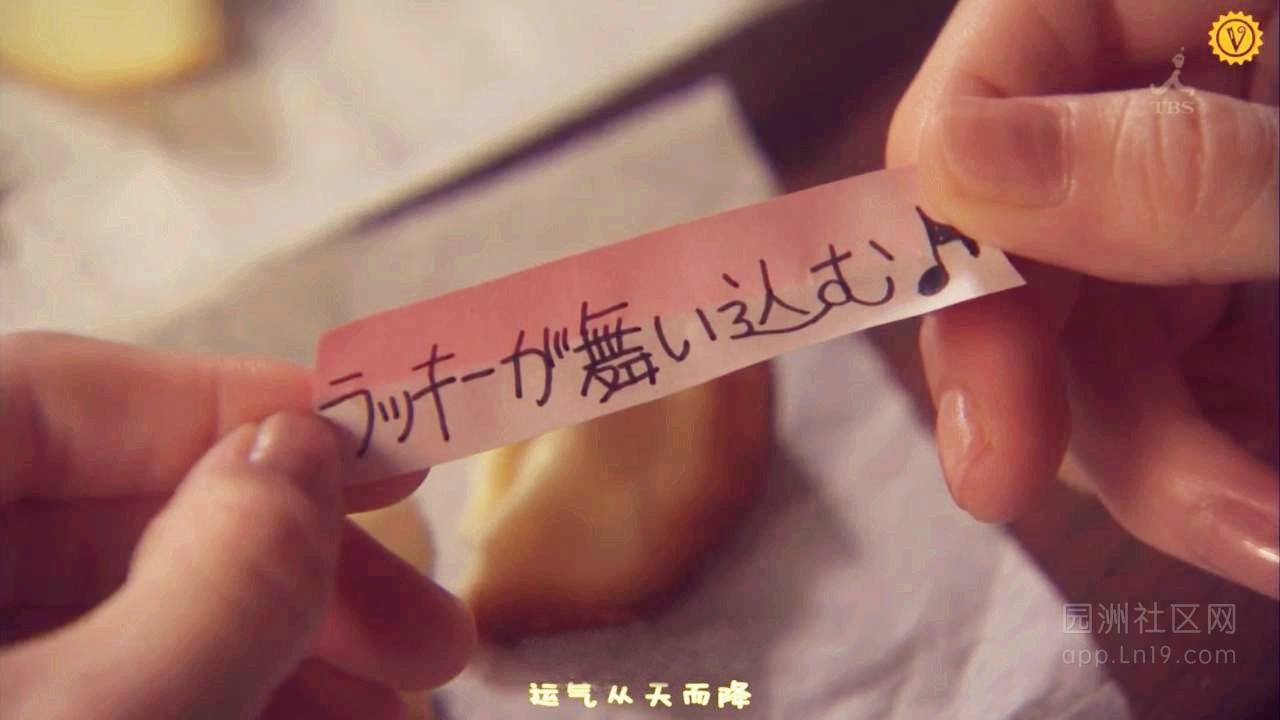 TBS
ラッキーが舞い込む♪
园洲社区网
app.Ln19.com
运气从天而降